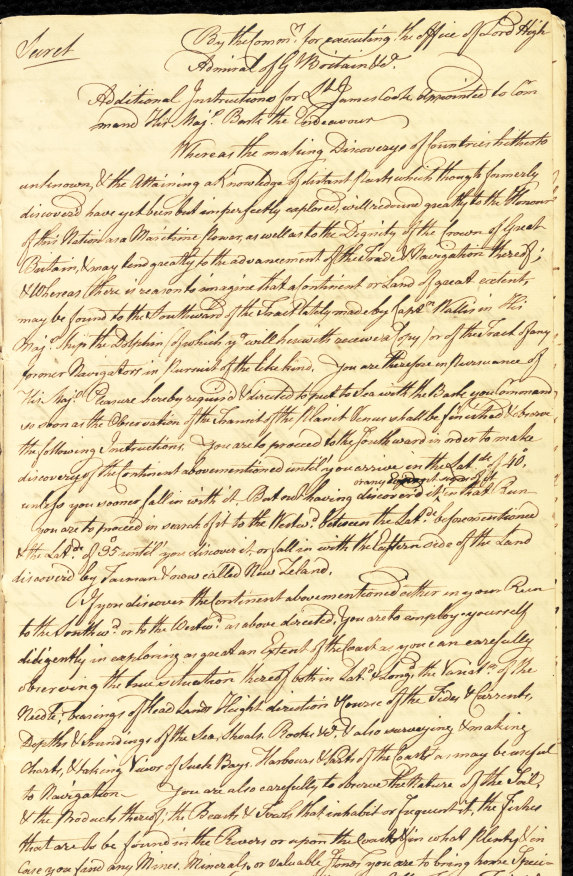 Secret
By the Comm.rs for executing the office of Lord High
Admiral of G.t Britain &ca.
Additional Instructions for L.t James Cook, appointed to Com
mand His Maj.s Bark the Endeavour
Whereas the making Discoverys of Countries hitherto
unknown, & the Attaining a Knowledge of distant Parts which though formerly
discover'd have yet been but imperfectly explored, will redound greatly to the Honour
of this Nation as a Maritime Power, as well as to the Dignity of the Crown of Great
Britain, & may tend greatly to the advancement of the Trade & Navigation thereof;
& Whereas there is reason to imagine that a Continent or Land of great extent,
may be found to the Southward of the Tract lately made by Capt.n Wallis in His
Maj.s Ship the Dolphin (of which you will herewith receive a Copy) or of the Tract of any
former Navigators in Pursuit of the like kind. You are therefore in Pursuance of
His Maj.s Pleasure hereby requir'd & directed to put to Sea with the Bark you Command
so soon as the Observation of the Transit of the Planet Venus shall be finished & observe
the following Instructions. You are to proceed to the Southward in order to make
discovery of the Continent abovementioned until you arrive in the Lat.de of 40°,
unless you sooner fall in with it. But not having discover'd it or any evident signs of it in that Run
you are to proceed in search of it to the Westw.d between the Lat.de beforementioned
& the Lat.de of 35° until you discover it, or fall in with the Eastern side of the Land
discover'd by Tasman & now called New Zeland.
If you discover the Continent abovementioned either in your Run
to the Southw.d or to the Westw.d as above directed, You are to employ yourself
diligently in exploring as great an Extent of the Coast as you can carefully
observing the true situation thereof both in Lat.de & Long.de the Variat.n of the
Needle; bearings of Head Lands Height direction & Course of the Tides & Currents,
Depths & Soundings of the Sea, Shoals, Rocks &ca. & also surveying & making
Charts, & taking Views of such Bays, Harbours & Parts of the Coast as may be useful
to Navigation. You are also carefully to observe the Nature of the Soil,
& the Products thereof; the Beasts & Fowls that inhabit or frequent it, the Fishes
that are to be found in the Rivers or upon the Coast & in what Plenty & in
Case you find any Mines, Minerals, or valuable Stones you are to bring home Speci-